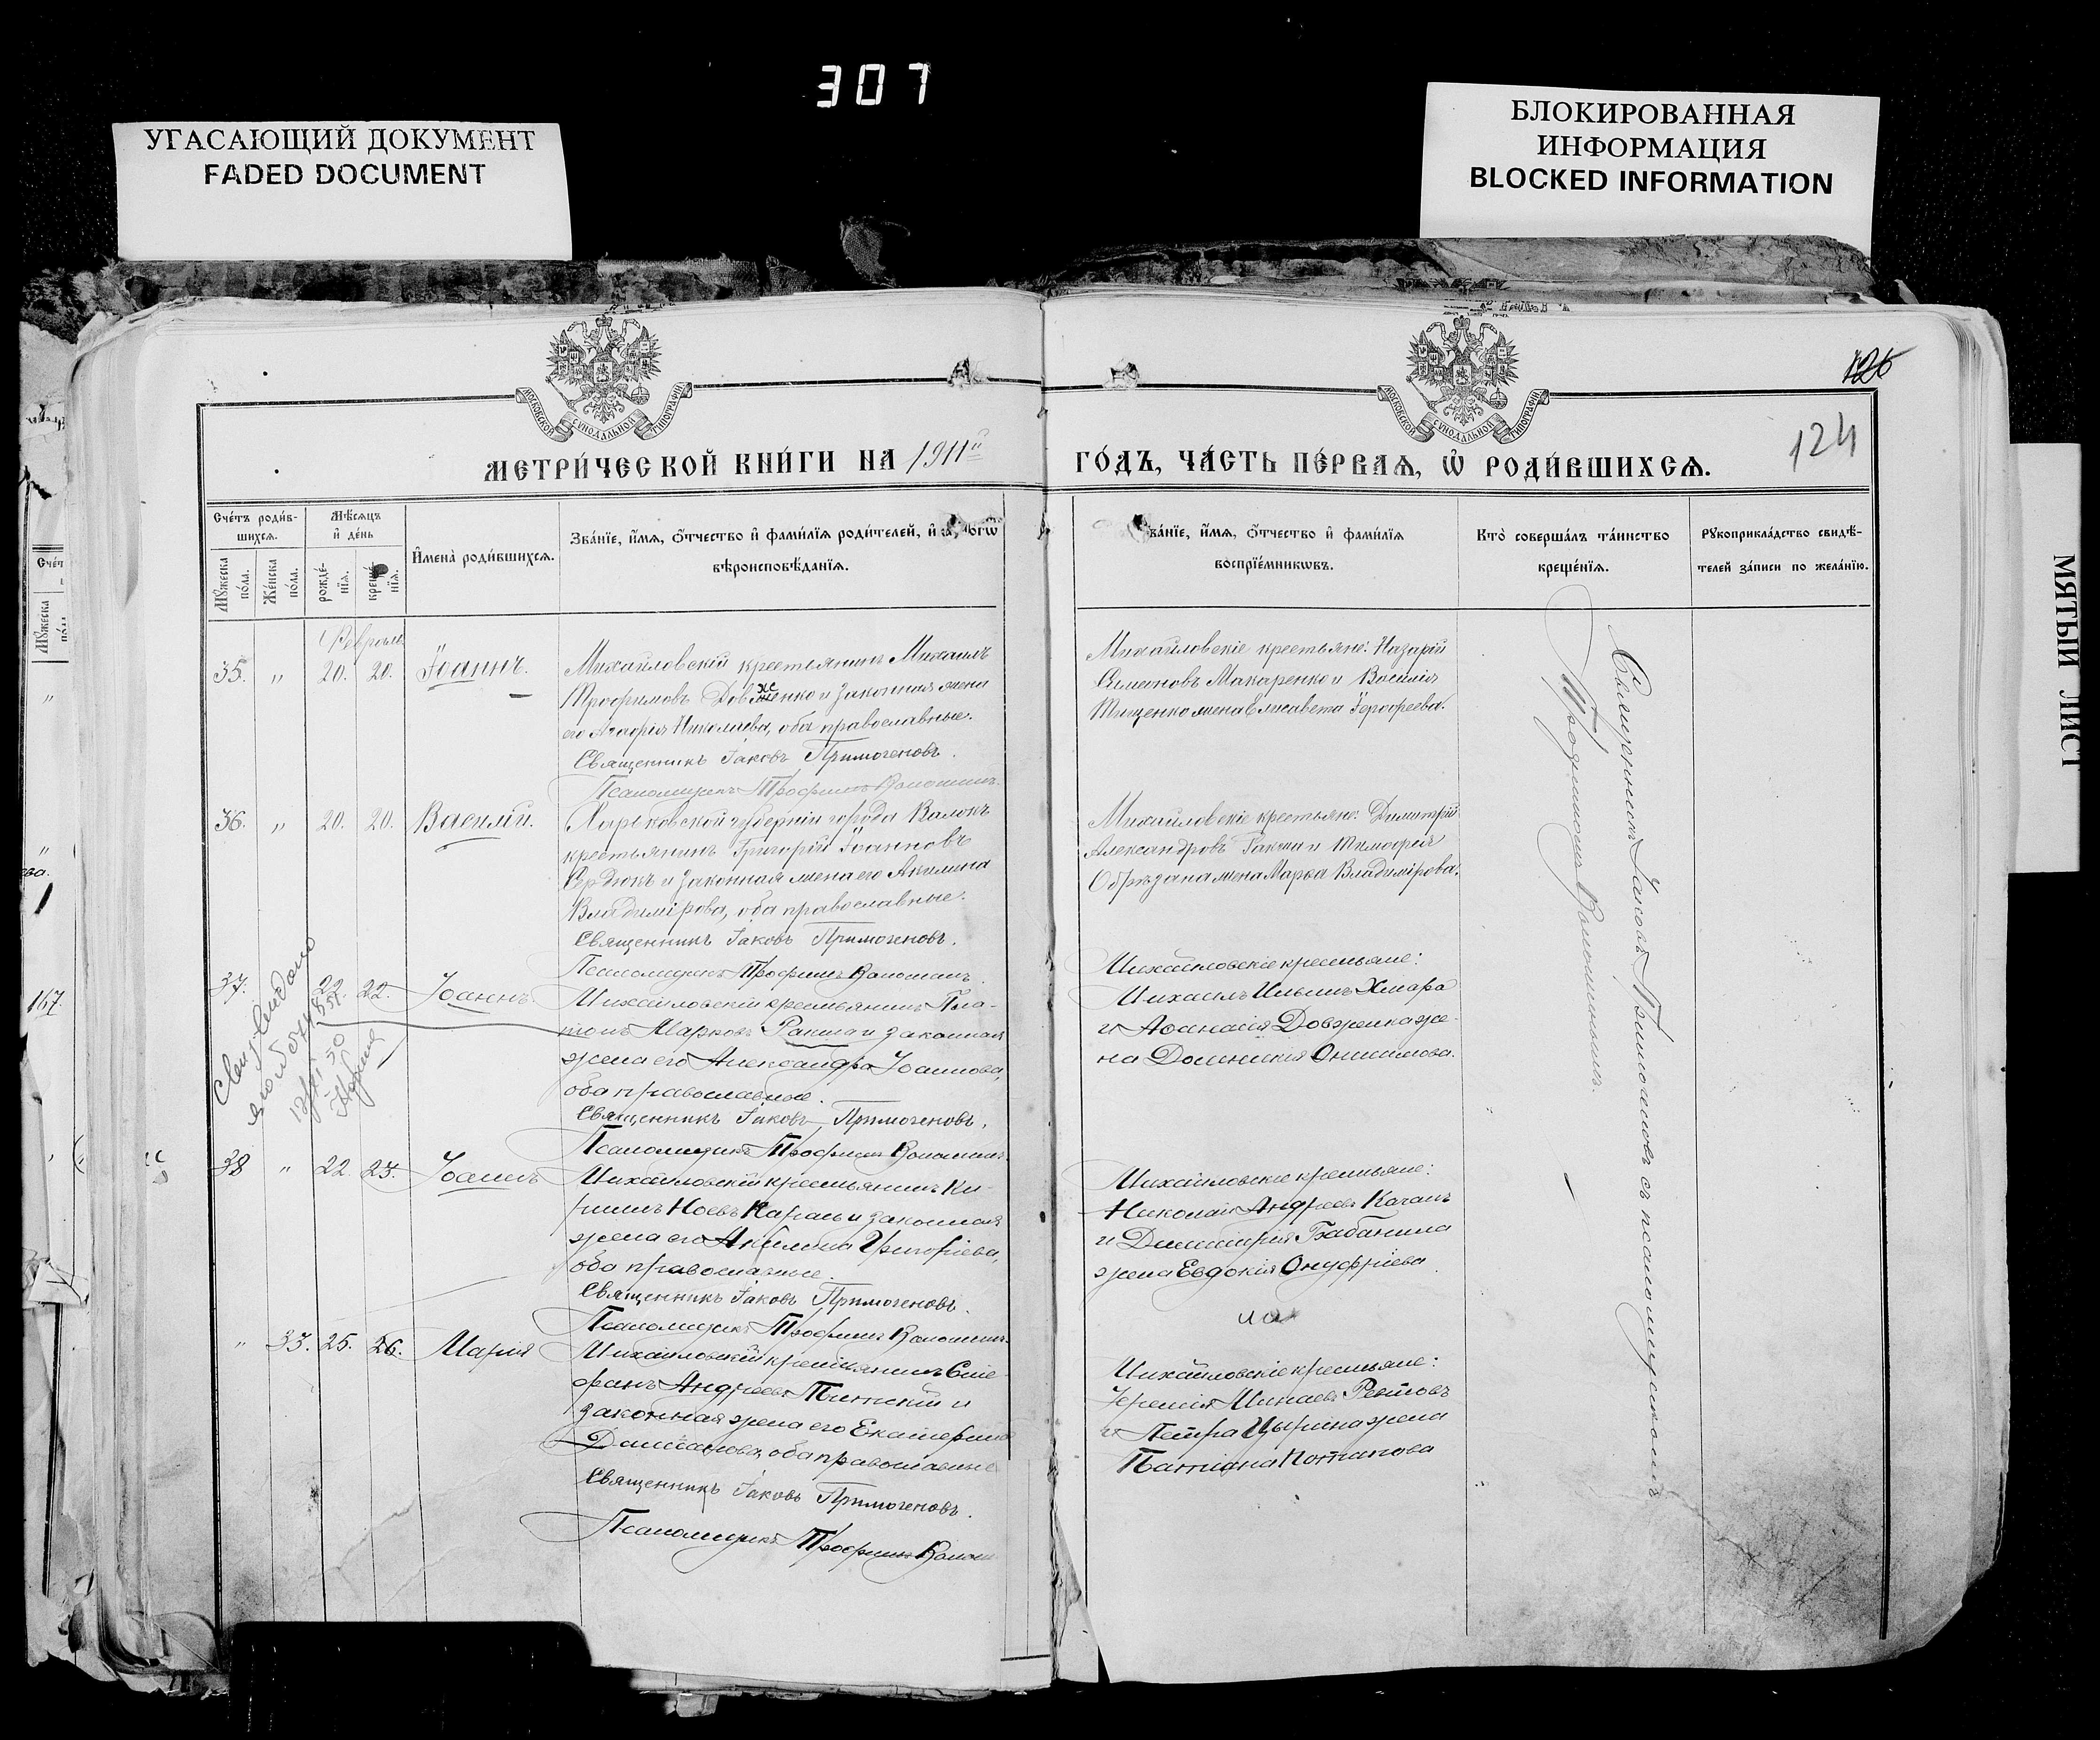 307
УГАСАЮЩИЙ ДОКУМЕНТ
FADED DOCUMENT
БЛОКИРОВАННАЯ
ИНФОРМАЦИЯ
BLOCKED INFORMATION
МЯТЫЙ ЛИСТ
126
124
МОСКОВСКОЙ СУНОДАЛЬНОЙ ТИПОГРАФІИ
МОСКОВСКОЙ СУНОДАЛЬНОЙ ТИПОГРАФІИ
МЕТРИ́ЧЕСКОЙ КНИ́ГИ НА 1911й
ГО́ДЪ, ЧА́СТЬ ПЕ́РВАѦ, Ѡ҆ РОДИ́ВШИХСѦ.
Сче́тъ роди́в-
шихсѧ.
Мѣ́сѧцъ
и҆ де́нь
Мꙋ́жеска по́ла.
Же́нска по́ла.
рожде́-
нїѧ.
креще́-
нїѧ.
И҆мена̀ роди́вшихсѧ.
Зва́нїе, и҆́мѧ, ѻ҆́тчество и҆ фами́лїѧ роди́телей, и҆
вѣроисповѣ́данїѧ.
Зва́нїе, и҆́мѧ, ѻ҆́тчество и҆ фами́лїѧ
воспрїе́мникѡвъ.
Кто̀ соверша́лъ та́инство
креще́нїѧ.
Рꙋкоприкла́дство свидѣ́-
телей за́писи по жела́нїю.
Февраль
35. " 20. 20. Іоаннъ.
Михайловскій крестьянинъ Михаилъ
Трофимовъ Довженко и законная жена
его Агафія Николаева, оба православные.
Священникъ Іаковъ Примогеновъ.
Псаломщикъ Трофимъ Волошинъ.
Михайловскіе крестьяне: Назарій
Симеоновъ Макаренко и Василія
Тищенко жена Елисавета Іерофеева.
36. " 20. 20. Василій.
Харьковской губерніи города Валокъ
крестьянинъ Григорій Іоанновъ
Сердюкъ и законная жена его Акилина
Владимірова, оба православные.
Священникъ Іаковъ Примогеновъ.
Псаломщикъ Трофимъ Волошинъ.
Михайловскіе крестьяне: Димитрій
Александровъ Ракша и Тимофея
Обрѣзана жена Марѳа Владимірова.
37. 22. 22. Іоаннъ.
Михайловскій крестьянинъ Пла-
тонъ Марковъ Ракша и законная
жена его Александра Іоаннова,
оба православные.
Священникъ Іаковъ Примогеновъ.
Псаломщикъ Трофимъ Волошинъ.
Михайловскіе крестьяне:
Михаилъ Ильинъ Хмара
и Аѳанасія Довженка же-
на Домникія Онисимова.
38 " 22. 23. Іоаннъ
Михайловскій крестьянинъ Ки-
риллъ Ноевъ Карась и законная
жена его Акилина Григоріева,
оба православные.
Священникъ Іаковъ Примогеновъ.
Псаломщикъ Трофимъ Волошинъ.
Михайловскіе крестьяне:
Николай Андреевъ Качанъ
и Димитрія Бабанина
жена Евдокія Онуфріева.
" 33. 25. 26. Марія
Михайловскій крестьянинъ Сте-
фанъ Андреевъ
законная жена его Екатерина
оба православные
Священникъ Іаковъ Примогеновъ.
Псаломщикъ Трофимъ
Михайловскіе крестьяне:
Іеремія Минаевъ
и Петра жена
Татіана Потапова
Священникъ Іаковъ Примогеновъ съ псаломщикомъ
Трофимомъ Волошинымъ.